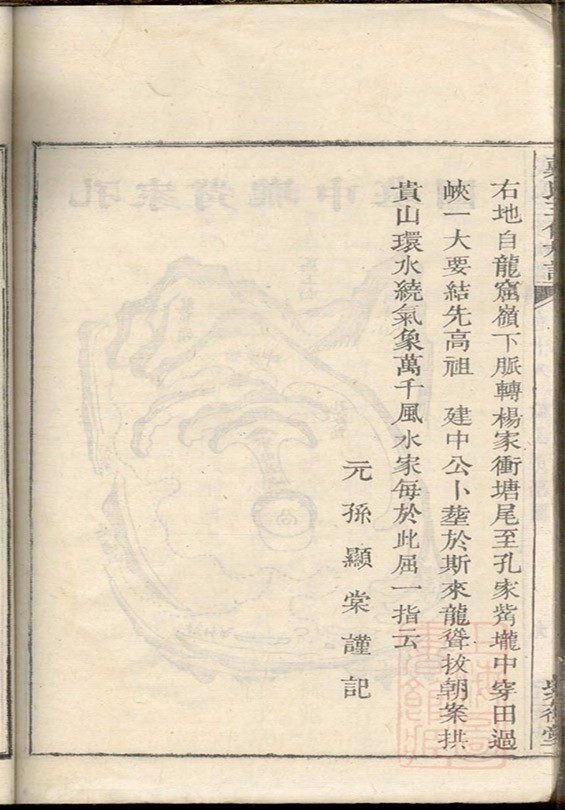 右地自龍窟嶺下脈轉楊家衝塘尾至孔家觜壠中穿田過
峽一大要結先高祖　建中公卜塟於斯來龍聳拔朝案拱
貴山環水繞氣象萬千風水家每於此屈一指云
元孫顯棠謹記